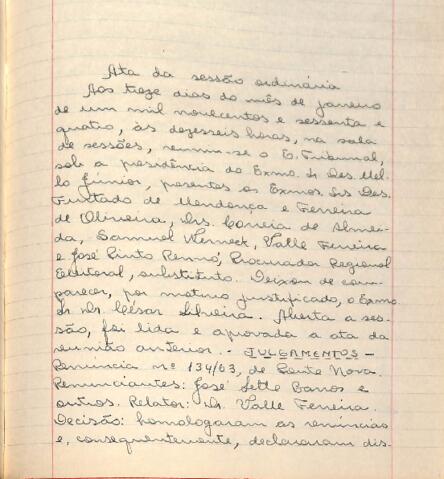 Ata da sessão ordinária
Aos treze dias do mês de janeiro
de um mil novecentos e sessenta e
quatro, às dezesseis horas, na sala
de sessões, reuniu-se o E. Tribunal,
sob a presidência do Exmo. Sr. Des. Mel-
lo Júnior, presentes os Exmos. Srs. Des.
Furtado de Mendonça e Ferreira
de Oliveira, Drs. Correia de Almei-
da, Samuel Werneck, Valle Ferreira
e José Pinto Renno, Procurador Regional
Eleitoral, substituto. Deixou de com-
parecer, por motivo justificado, o Exmo.
Sr. Dr. César Silveira. Aberta a ses-
são, foi lida e aprovada a ata da
reunião anterior. - JULGAMENTOS -
Renúncia nº 134/63, de Ponte Nova.
Renunciantes: José Sette Barros e
outros. Relator: Dr. Valle Ferreira.
Decisão: homologaram as renúncias
e, consequentemente, declararam dis-